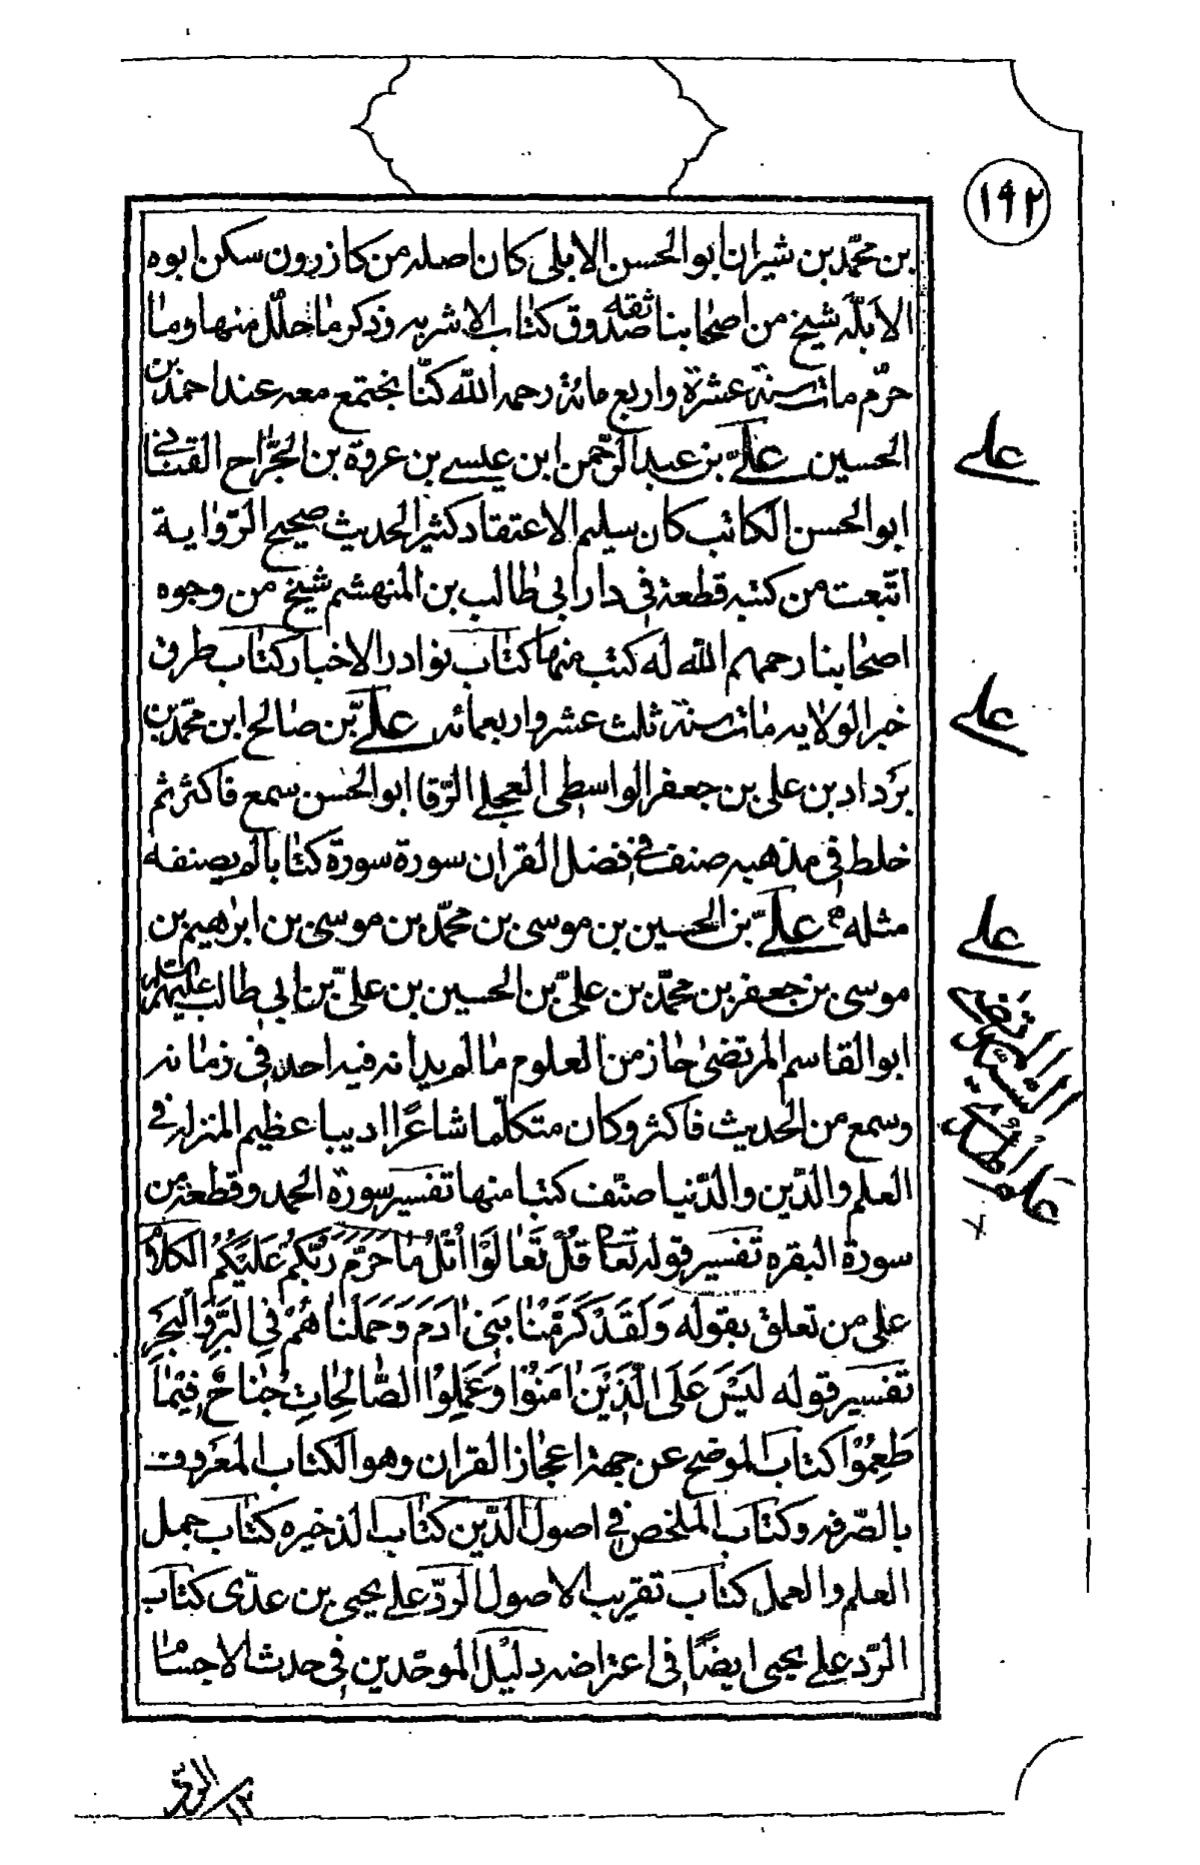 ١٩٢
بن محمّد بن شيران ابو الحسن الابلى كان اصله من كازرون سكن ابوه
الابلّه شيخ من اصحابنا ثقه صدوق كتاب الاشربه وذكر ما حلّل منها وما
حرّم مات سنة عشرة واربع مائة رحمه الله كنّا نجتمع معه عند احمد بن
الحسين علىّ بن عبد الرّحمن ابن عيسى بن عروة بن الجرّاح القنانى
ابو الحسن الكاتب كان سليم الاعتقاد كثير الحديث صحيح الرّواية
ابتعت من كتبه قطعة فى دار ابى طالب بن المنهشم شيخ من وجوه
اصحابنا رحمهم الله له كتب منها كتاب نوادر الاخبار كتاب طرق
خبر الولايه مات سنة ثلث عشر واربعمائه علىّ بن صالح ابن محمّد بن
يزداد بن على بن جعفر الواسطى العجلى الرّفا ابو الحسن سمع فاكثر ثم
خلط فى مذهبه صنف فى فضل القران سورة سورة كتابا لم يصنف
مثله علىّ بن الحسين بن موسى بن محمّد بن موسى بن ابرهيم بن
موسى بن جعفر بن محمّد بن علىّ بن الحسين بن علىّ بن ابى طالب عليهم السّلم
ابو القاسم المرتضى حاز من العلوم ما لم يدانه فيه احد فى زمانه
وسمع من الحديث فاكثر وكان متكلّما شاعرًا اديبا عظيم المنزله فى
العلم والدّين والدّنيا صنّف كتبا منها تفسير سورة الحمد وقطعة من
سورة البقره تفسير قوله تعا قُلْ تَعَالَوْا اَتْلُ مَا حَرَّمَ رَبُّكُمْ عَلَيْكُمْ الكلام
على من تعلق بقوله وَلَقَدْ كَرَّمْنَا بَنِى آدَمَ وَحَمَلْنَاهُمْ فِى الْبَرِّ وَالْبَحْرِ
تفسير قوله لَيْسَ عَلَى الَّذِيْنَ امَنُوْا وَعَمِلُوا الصَّالِحَاتِ جُنَاحٌ فِيْمَا
طَعِمُوْا كتاب الموضح عن جهة اعجاز القران وهو الكتاب المعروف
بالصّرفه وكتاب الملخص فى اصول الدّين كتاب الذخيره كتاب جمل
العلم والعمل كتاب تقريب الاصول الردّ على يحيى بن عدّى كتاب
الرّد على يحيى ايضًا فى اعتراضه دليل الموحّدين فى حدث الاجسام
على
على
على
السّيّد المرتضى
علم الهدى